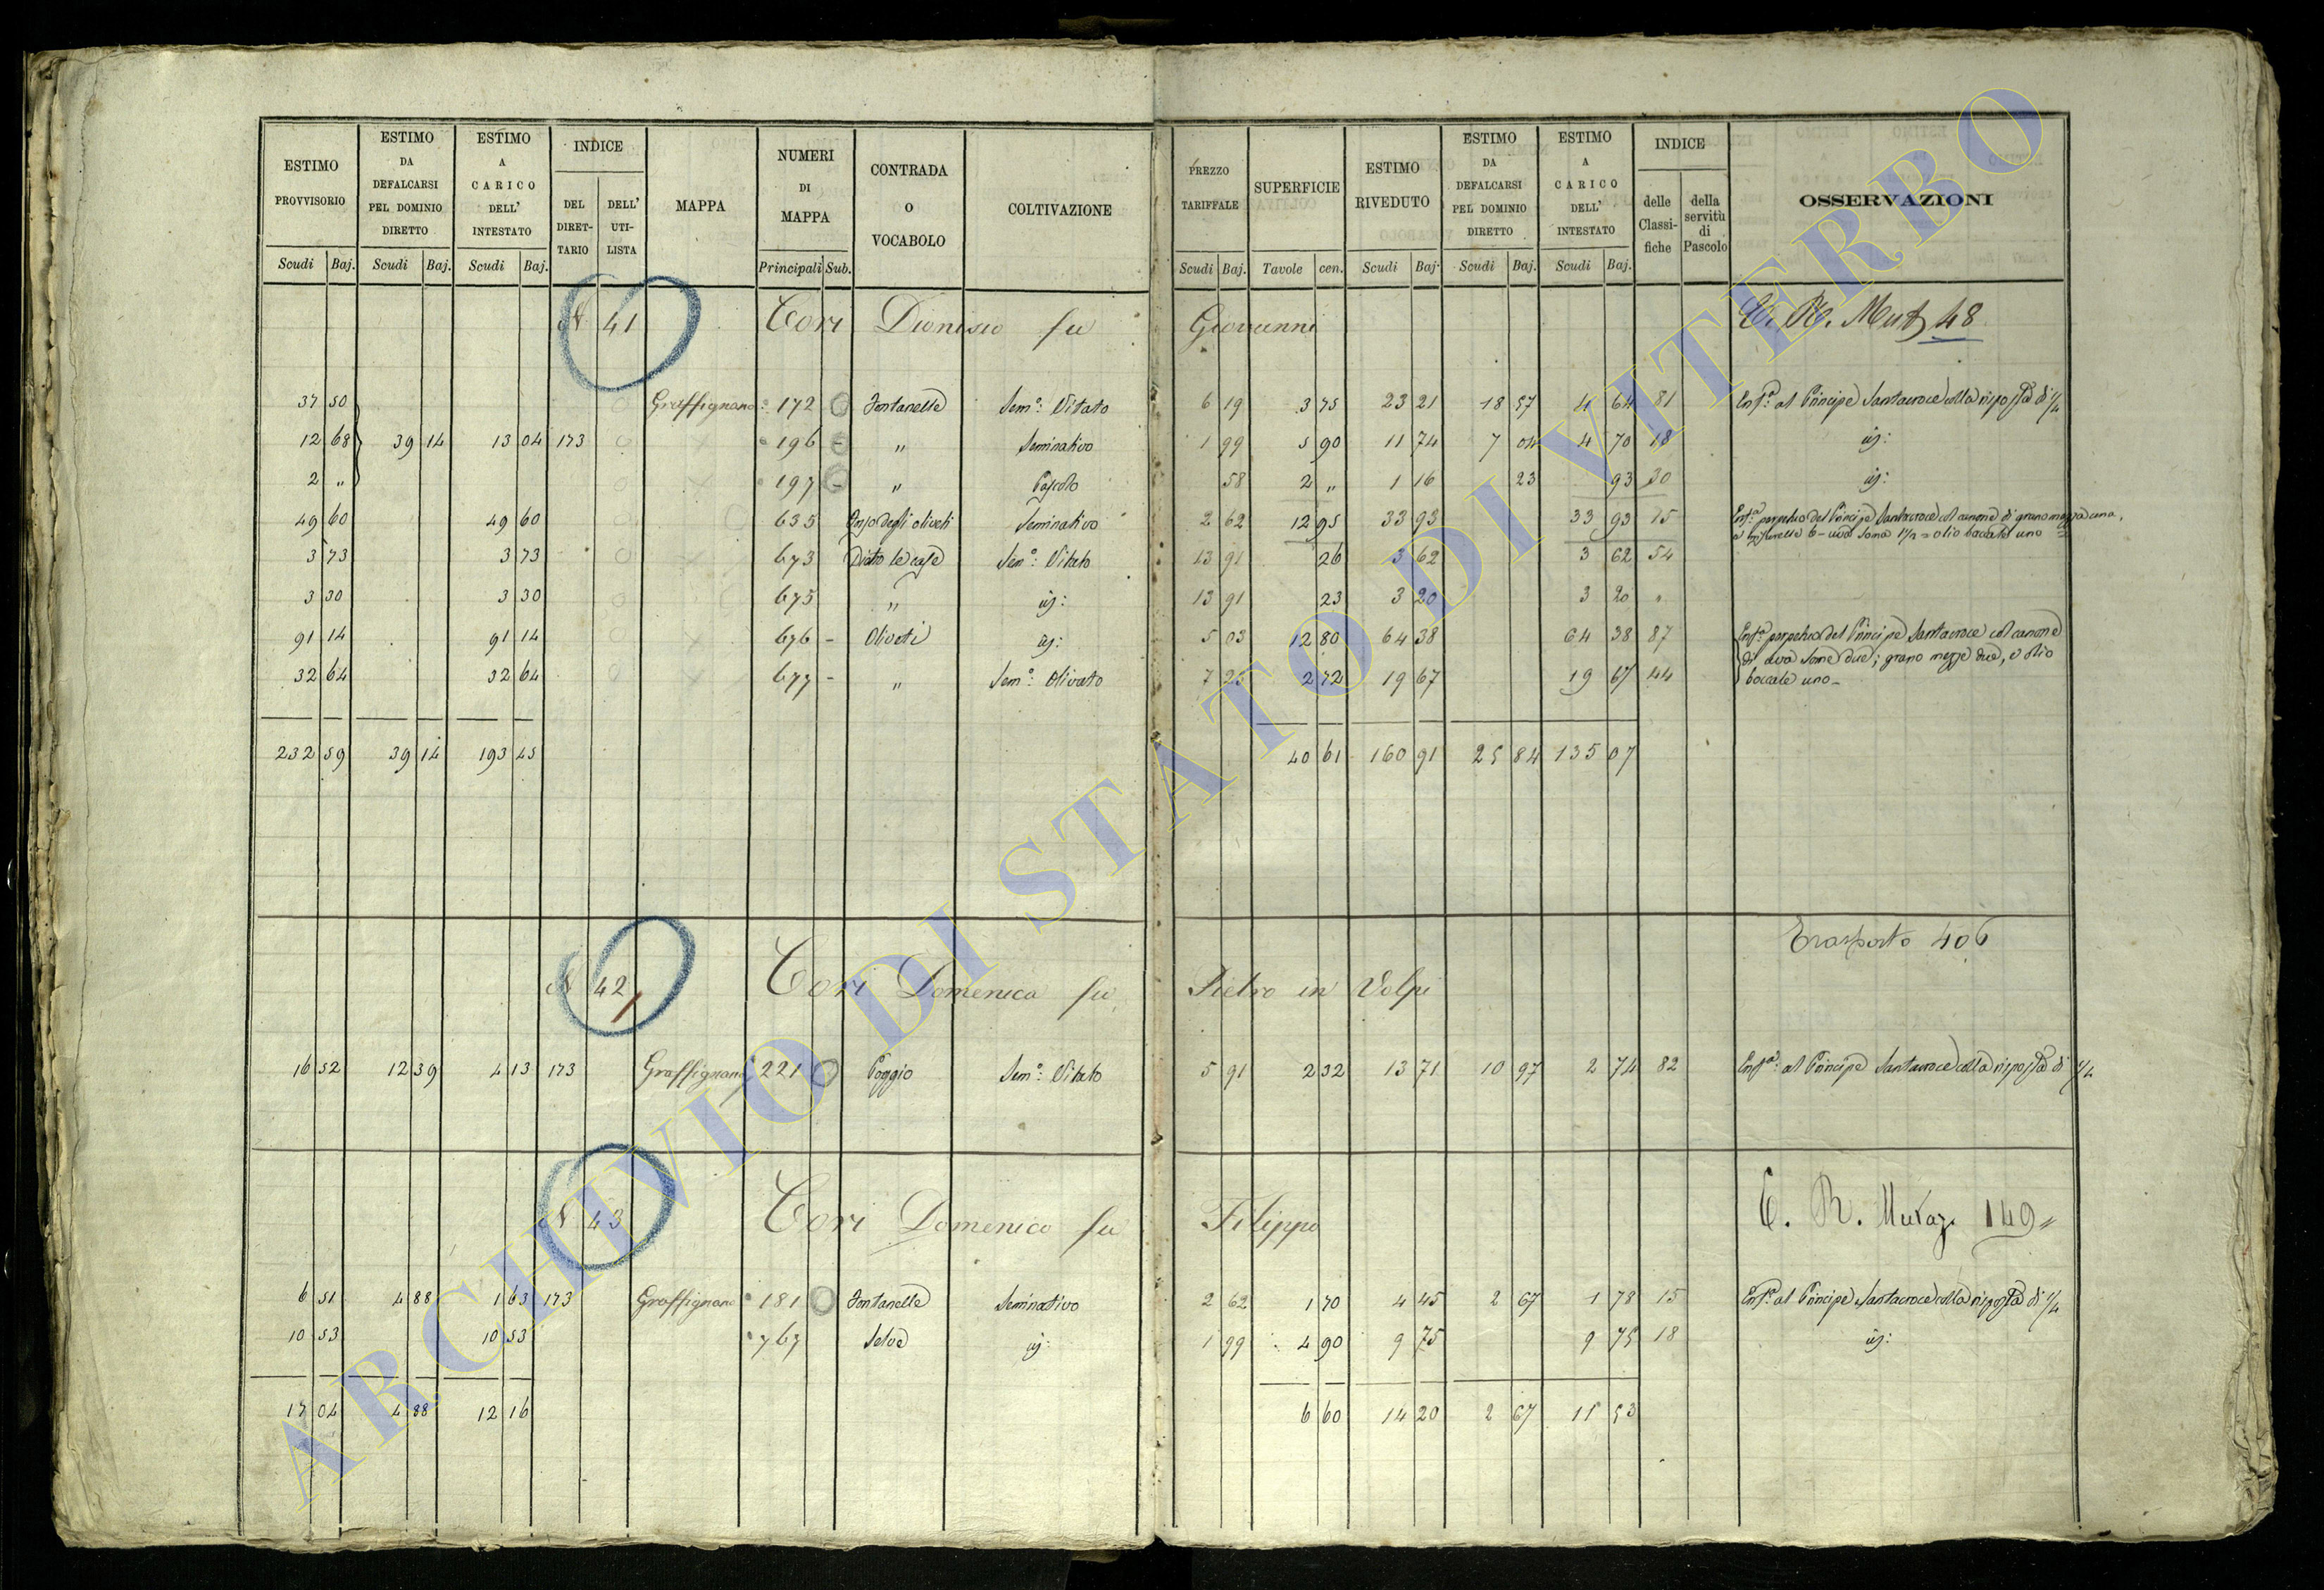 ESTIMO PROVVISORIO | ESTIMO DA DEFALCARSI PEL DOMINIO DIRETTO | ESTIMO A CARICO DELL' INTESTATO | INDICE | MAPPA | NUMERI DI MAPPA | CONTRADA O VOCABOLO | COLTIVAZIONE | PREZZO TARIFFALE | SUPERFICIE | ESTIMO RIVEDUTO | ESTIMO DA DEFALCARSI PEL DOMINIO DIRETTO | ESTIMO A CARICO DELL' INTESTATO | INDICE | OSSERVAZIONI
DEL DIRETTARIO | DELL' UTILISTA | delle Classifiche | della servitù di Pascolo
Scudi | Baj. | Scudi | Baj. | Scudi | Baj. | Principali | Sub. | Scudi | Baj. | Tavole | cen. | Scudi | Baj. | Scudi | Baj. | Scudi | Baj.
N 41 Cori Dionisio fu Giovanni C. R. Mut 48
37 50 Graffignano 172 Fontanelle Sem.o Vitato 6 19 3 75 23 21 18 57 4 64 81 Enf.a al Principe Santacroce colla risposta di 1/4
12 68 39 14 13 04 173 196 - " Seminativo 1 99 5 90 11 74 7 04 4 70 18 id:
2 " 197 - " Pascolo 58 2 " 1 16 23 93 30 id:
49 60 49 60 635 degli oliveti Seminativo 2 62 12 95 33 93 33 93 15 Enf.a perpetua del Principe Santacroce col canone di grano mezza una,
uva Soma 1/2 = olio boccale uno
3 73 3 73 673 Dietro le case Sem.o Vitato 13 91 26 3 62 3 62 54
3 30 3 30 675 " id: 13 91 23 3 20 3 20 "
91 14 91 14 676 - Oliveti id: 5 03 12 80 64 38 64 38 87 Enf.a perpetua del Principe Santacroce col canone
di uva Some due; grano mezze due, e olio
32 64 32 64 677 - " Sem.o Olivato 7 23 2 72 19 67 19 67 44 boccale uno -
232 59 39 14 193 45 40 61 160 91 25 84 135 07
Trasporto 406
N 42 Cori Domenica fu Pietro in Volpi
16 52 12 39 4 13 173 Graffignano 221 Poggio Sem.o Vitato 5 91 2 32 13 71 10 97 2 74 82 Enf.a al Principe Santacroce colla risposta di 1/4
N 43 Cori Domenico fu Filippo C. R. Mutaz. 149
6 51 4 88 1 63 173 Graffignano 181 Fontanelle Seminativo 2 62 1 70 4 45 2 67 1 78 15 Enf.a al Principe Santacroce colla risposta di 1/4
10 53 10 53 767 Selva id: 1 99 4 90 9 75 9 75 18 id:
17 04 4 88 12 16 6 60 14 20 2 67 11 53
ARCHIVIO DI STATO DI VITERBO